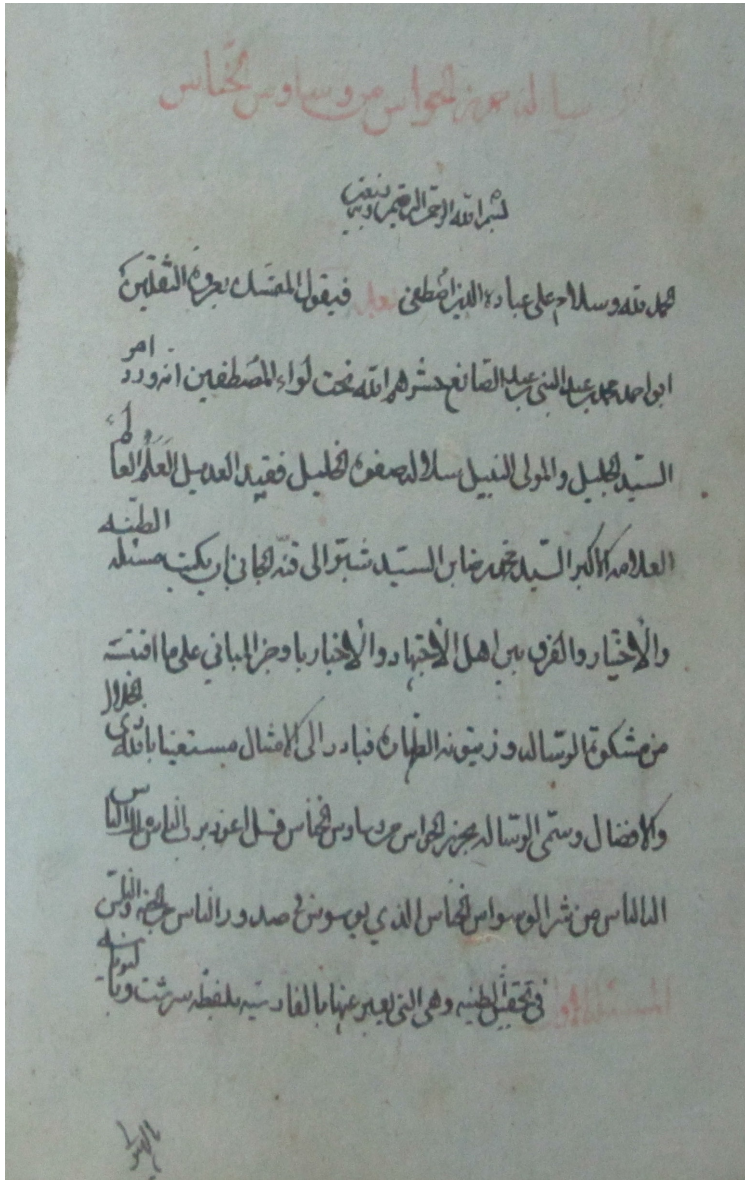 رسالة حرز الحواس من وساوس الخناس
بسم الله الرحمن الرحيم وبه نستعين
حمد لله وسلام على عباده الذين اصطفى فيقول المتمسك بعروة الثقلين
ابو احمد محمد بن عبد النبي بن عبد الصانع حشرهم الله تحت لواء المصطفين انه ورد امر
السيد الجليل والمولى النبيل سلالة صفوة الخليل فقيد العديل العلم العالم
العلامة الاكبر السيد محمد رضا بن السيد شبر الى قنه الجاني بان يكتب مسئلة الطينه
والاختيار والفرق بين اهل الاجتهاد والاخبار باوجز المباني على ما اقتبسته
من مشكوة الرسالة وزيتونة الطهارة فبادر الى الامتثال مستعينا بالله ذي الجلال
والافضال وسمى الرسالة بحرز الحواس من وساوس الخناس قل اعوذ برب الناس ملك الناس
اله الناس من شر الوسواس الخناس الذي يوسوس في صدور الناس من الجنه والناس
المسئلة الاولى في تحقيق الطينه وهي التي يعبر عنها بالفارسيه بلفظة سرشت